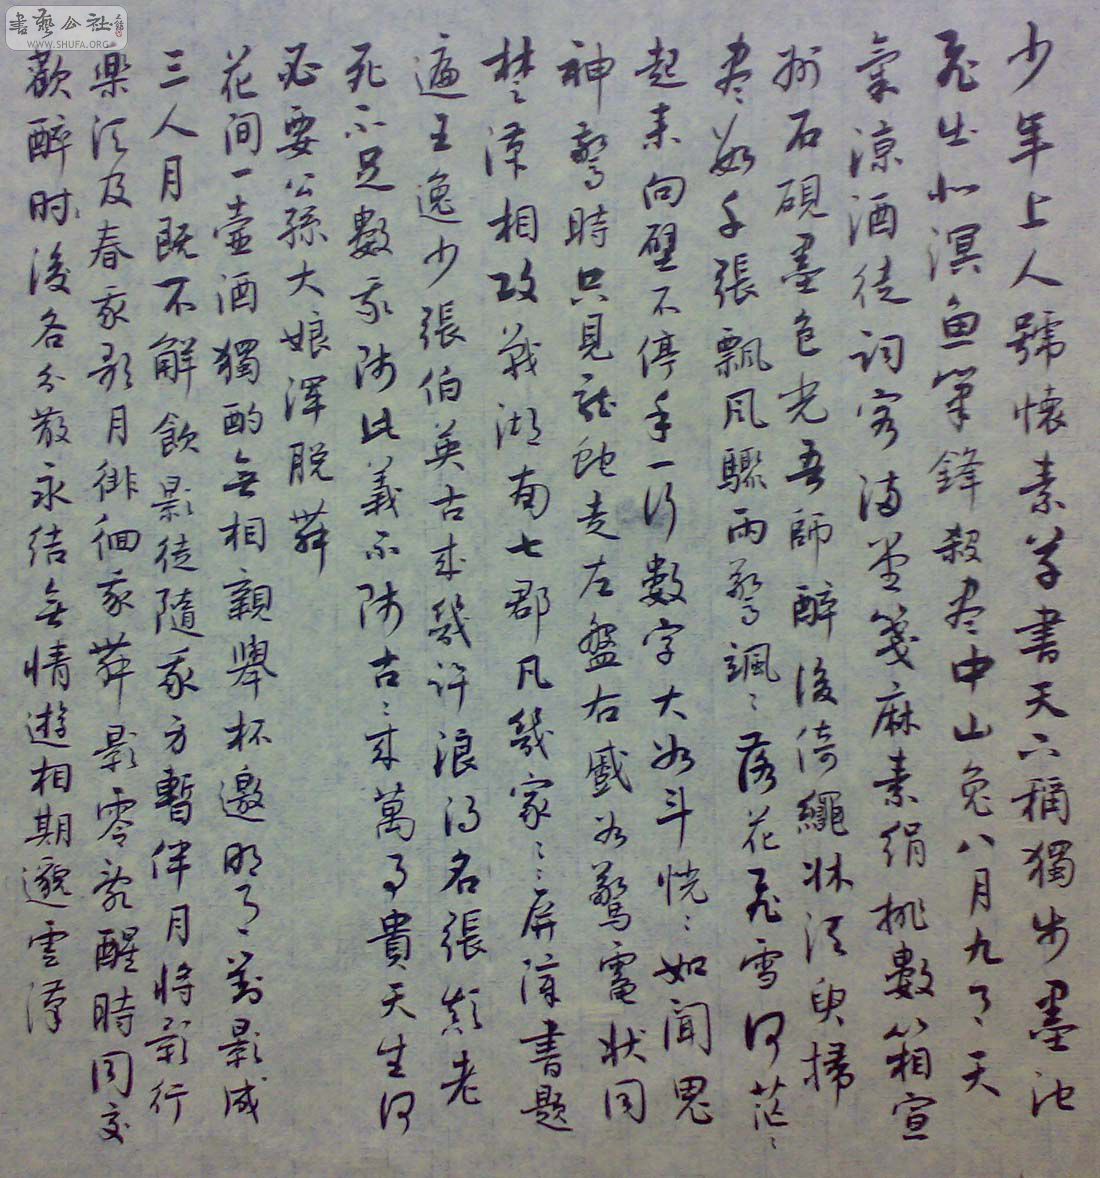 書藝公社
WWW.SHUFA.ORG
少年上人號懷素草書天下稱獨步墨池
飛出北溟魚筆鋒殺盡中山兔八月九月天
氣涼酒徒詞客滿堂箋麻素絹排數箱宣
州石硯墨色光吾師醉後倚繩牀須臾掃
盡數千張飄風驟雨驚颯〻落花飛雪何茫〻
起來向壁不停手一行數字大如斗恍〻如聞鬼
神驚時只見龍蛇走左盤右蹙如驚電狀同
楚漢相攻戰湖南七郡凡幾家〻屏障書題
遍王逸少張伯英古來幾許浪得名張顛老
死不足數我師此義不師古〻來萬事貴天生何
必要公孫大娘渾脱舞
花间一壶酒獨酌無相親舉杯邀明月對影成
三人月既不解飲影徒隨我方暫伴月將影行
樂須及春我歌月徘徊我舞影零亂醒時同交
歡醉时後各分散永结無情遊相期邈雲漢